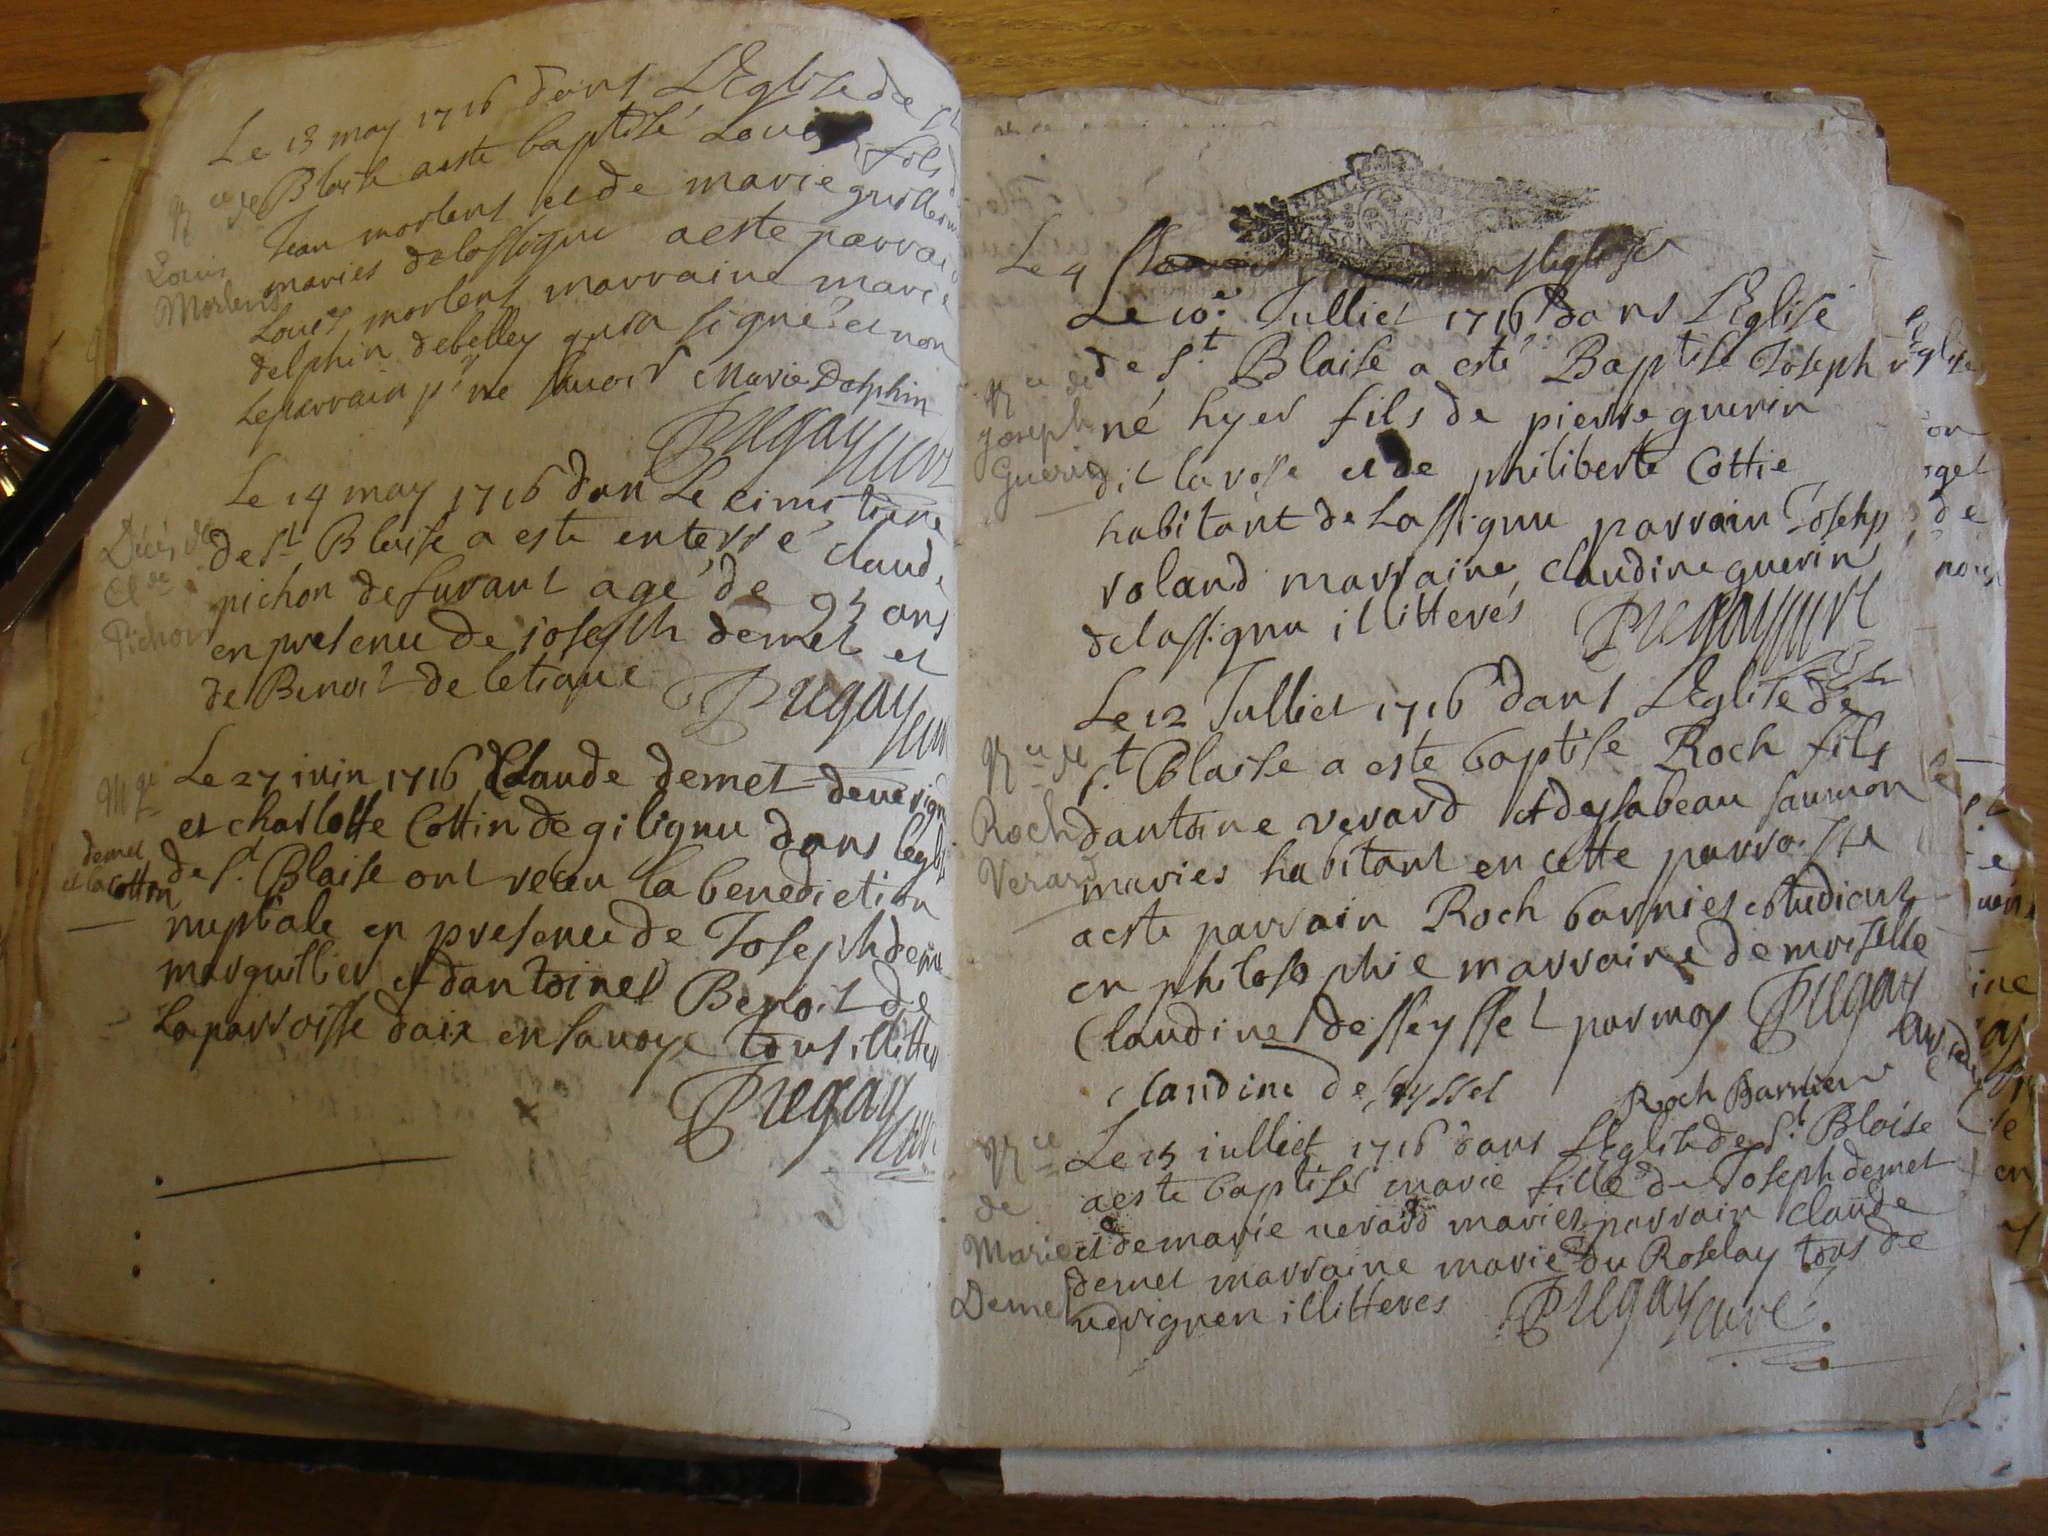 Le 13 may 1716 dans L'Eglise de St
Blaise a este baptisé Louis fils
Jean morlens et de marie
maries de lassignu a este parrain
Louis morlens marraine marie
delphin de belley qui a signé et non
le parrain pr ne scavoir Marie Dalphin
Pugay curé
Nce de
Louis
Morlens
Le 14 may 1716 dan Le cimitiere
de St Blaise a este enterré claude
pichon de furant agé de ans
en presence de ioseph demet et
de Benoit de letraue
Pugay curé
Décès de
Clde
Pichon
Le 27 iuin 1716 Claude demet de
et charlotte Cottin de gilignu dans leglise
de St Blaise ont receu la benediction
nuptiale en presence de Joseph
marguillier et dantoine Benoit de
La parroisse daix en sauoye tous
Pugay curé
Mge
demet
et la cotton
Le 4
Le 10e Julliet 1716 dans L'Eglise
de St Blaise a esté Baptise Joseph
né hyer fils de pierre guerin
dit la rose et de philiberte Cottie
habitant de Lassignu parrain Josehp
roland marraine claudine guerin
de lassignu illitterés Pugay curé
Nce de
Joseph
Guerin
Le 12 Julliet 1716 dans L'Eglise de
St Blaise a este baptise Roch fils
dantoine verard et deysabeau saumon
maries habitant en cette parroisse
a este parrain Roch barnier etudiant
en philosophie marraine demoiselle
Claudine de sseyssel par moy Pugay
curé
claudine de seyssel Roch Barnier
Nce de
Roch
Verard
Le 15 iulliet 1716 dans L'Eglise de St Blaise
a este baptisé marie fille de Joseph demet
et de marie verard maries parrain claude
demet marraine marie du Roselay tous de
uevignen illitteres Pugay curé.
Nce
de
Marie
Demet